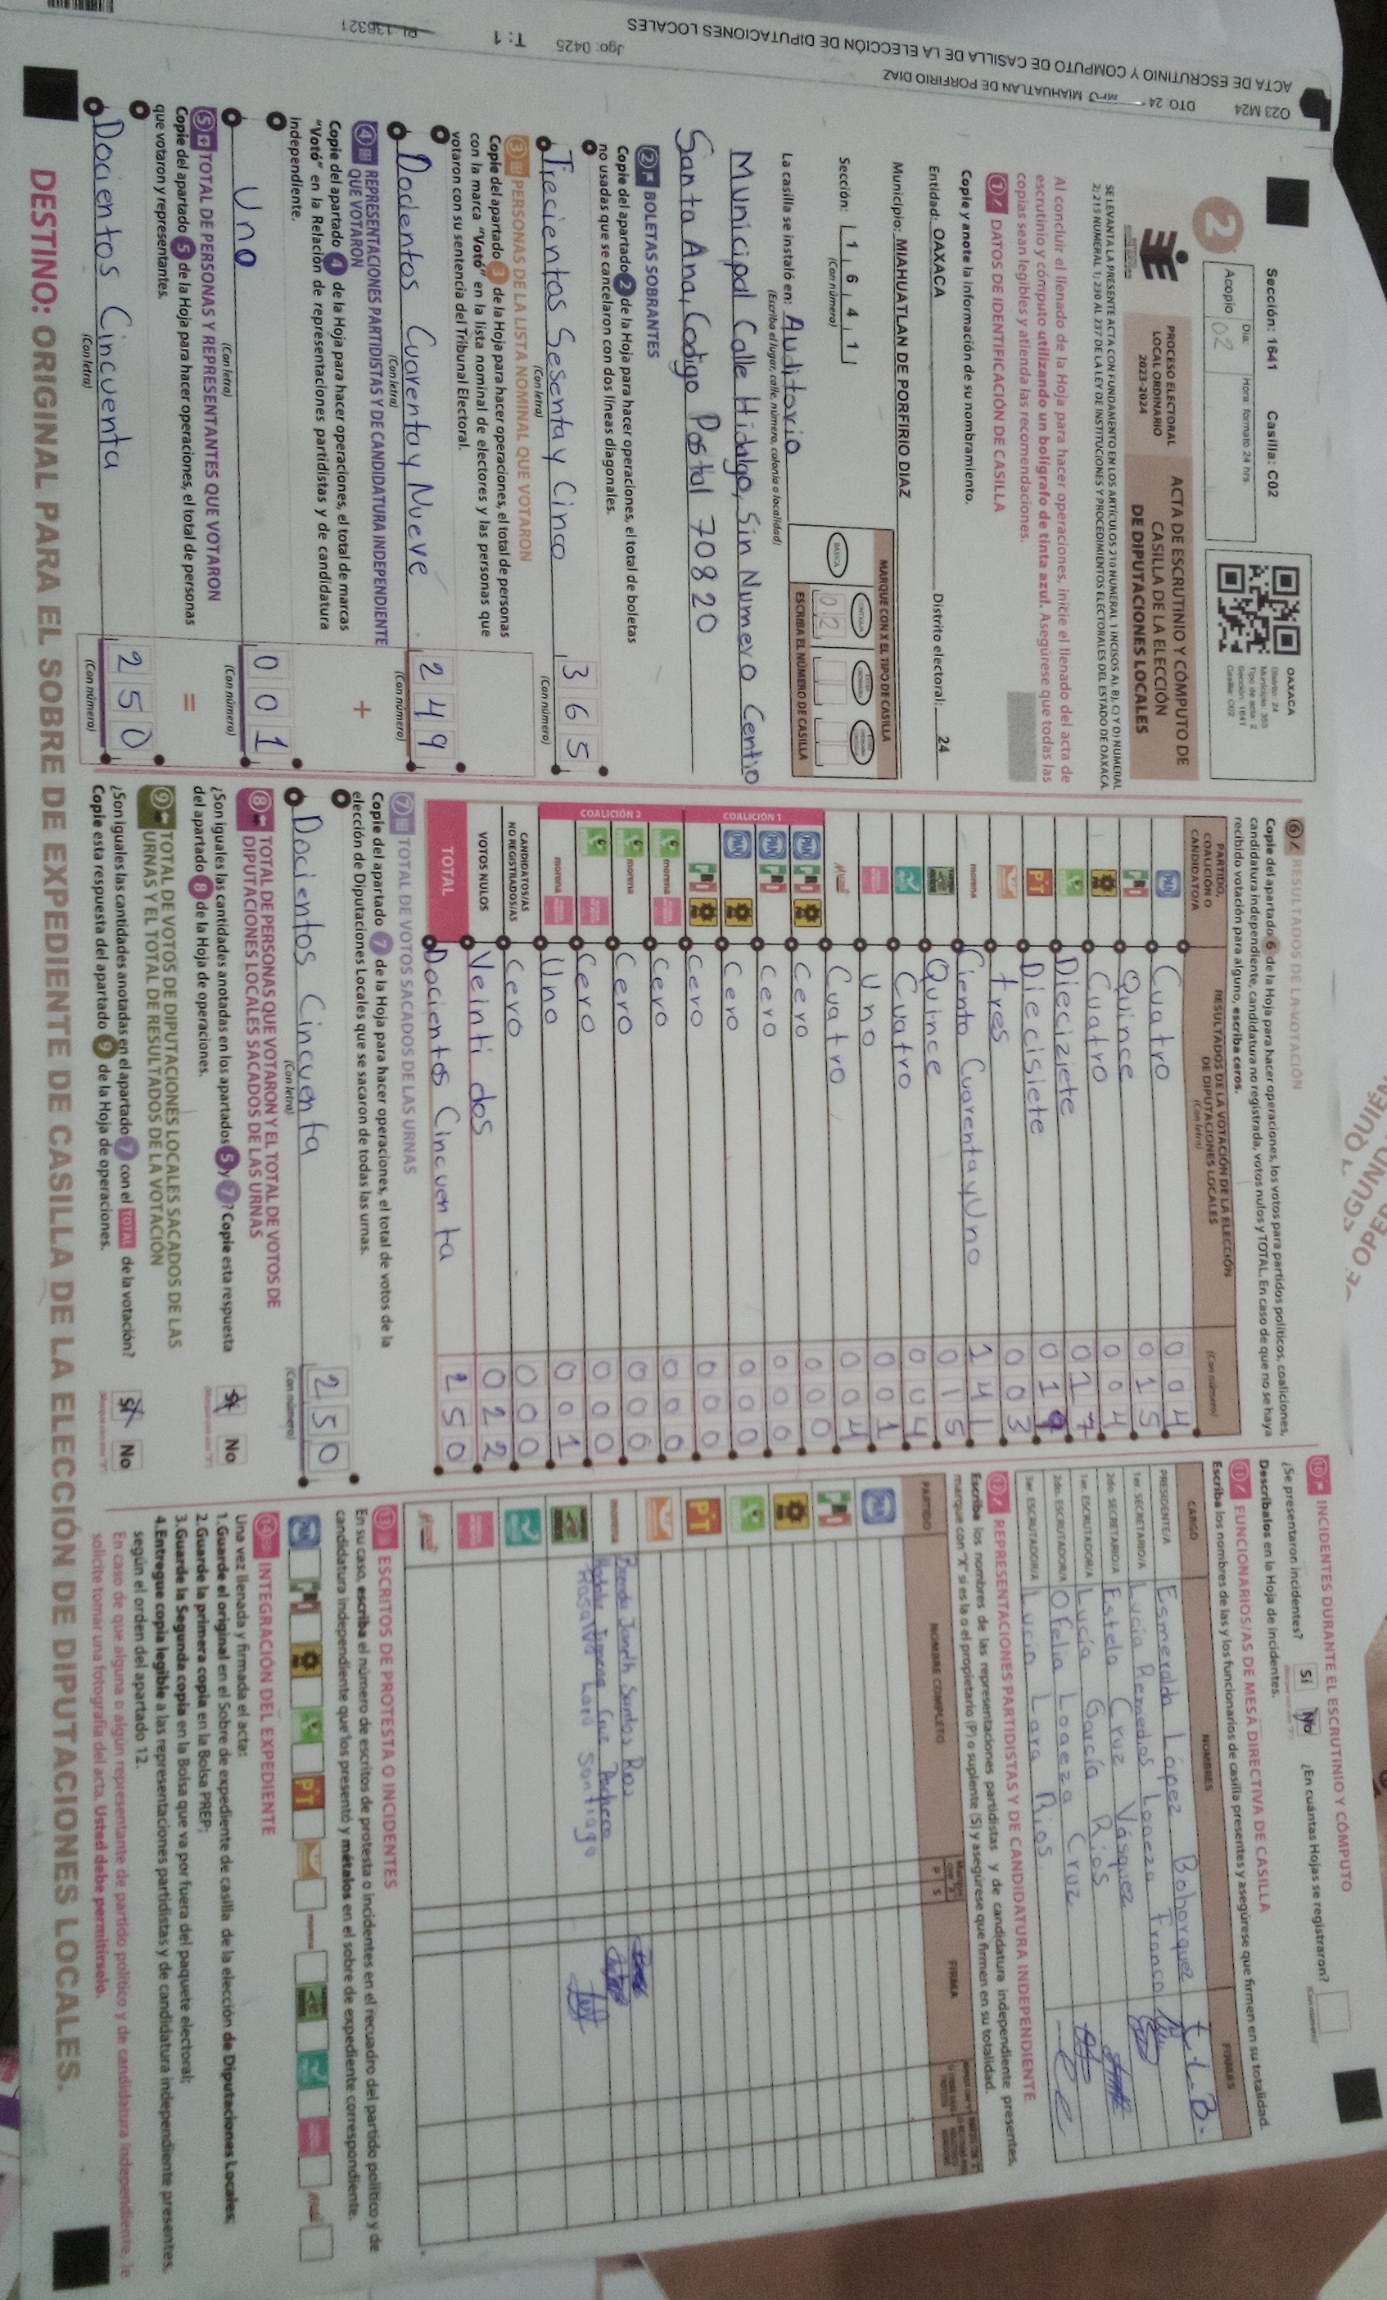 O23 M24 DTO. 24 MIAHUATLAN DE PORFIRIO DIAZ
ACTA DE ESCRUTINIO Y CÓMPUTO DE CASILLA DE LA ELECCIÓN DE DIPUTACIONES LOCALES
Jgo: 0425 T: 1
Sección: 1641 Casilla: C02
2
Día: Hora: formato 24 hrs
Acopio 02
OAXACA
Distrito: 24
Municipio: 303
Tipo de acta: 2
Sección: 1641
Casilla: C02
PROCESO ELECTORAL
LOCAL ORDINARIO
2023-2024
ACTA DE ESCRUTINIO Y CÓMPUTO DE
CASILLA DE LA ELECCIÓN
DE DIPUTACIONES LOCALES
SE LEVANTA LA PRESENTE ACTA CON FUNDAMENTO EN LOS ARTÍCULOS 210 NUMERAL 1 INCISOS A), B), C) Y D) NUMERAL
2; 215 NUMERAL 1; 230 AL 237 DE LA LEY DE INSTITUCIONES Y PROCEDIMIENTOS ELECTORALES DEL ESTADO DE OAXACA.
Al concluir el llenado de la Hoja para hacer operaciones, inicie el llenado del acta de
escrutinio y cómputo utilizando un bolígrafo de tinta azul. Asegúrese que todas las
copias sean legibles y atienda las recomendaciones.
1 DATOS DE IDENTIFICACIÓN DE CASILLA
Copie y anote la información de su nombramiento.
Entidad: OAXACA Distrito electoral: 24
Municipio: MIAHUATLAN DE PORFIRIO DIAZ
Sección: 1 6 4 1
(Con número)
MARQUE CON X EL TIPO DE CASILLA
BÁSICA
0 2
ESCRIBA EL NÚMERO DE CASILLA
La casilla se instaló en: Auditorio
(Escriba el lugar, calle, número, colonia o localidad)
Municipal Calle Hidalgo, Sin Numero Centro
Santa Ana, Codigo Postal 70820
2 BOLETAS SOBRANTES
Copie del apartado 2 de la Hoja para hacer operaciones, el total de boletas
no usadas que se cancelaron con dos líneas diagonales.
Trecientos Sesenta y Cinco 3 6 5
(Con letra) (Con número)
3 PERSONAS DE LA LISTA NOMINAL QUE VOTARON
Copie del apartado 3 de la Hoja para hacer operaciones, el total de personas
con la marca "Votó" en la lista nominal de electores y las personas que
votaron con su sentencia del Tribunal Electoral.
Docientos Cuarenta y Nueve 2 4 9
(Con letra) (Con número)
4 REPRESENTACIONES PARTIDISTAS Y DE CANDIDATURA INDEPENDIENTE
QUE VOTARON
+
Copie del apartado 4 de la Hoja para hacer operaciones, el total de marcas
"Votó" en la Relación de representaciones partidistas y de candidatura
independiente.
Uno 0 0 1
(Con letra) (Con número)
5 TOTAL DE PERSONAS Y REPRESENTANTES QUE VOTARON
=
Copie del apartado 5 de la Hoja para hacer operaciones, el total de personas
que votaron y representantes.
Docientos Cincuenta 2 5 0
(Con letra) (Con número)
6 RESULTADOS DE LA VOTACIÓN
Copie del apartado 6 de la Hoja para hacer operaciones, los votos para partidos políticos, coaliciones,
candidatura independiente, candidatura no registrada, votos nulos y TOTAL. En caso de que no se haya
recibido votación para alguno, escriba ceros.
PARTIDO,
COALICIÓN O
CANDIDATO/A
RESULTADOS DE LA VOTACIÓN DE LA ELECCIÓN
DE DIPUTACIONES LOCALES
(Con letra) (Con número)
PAN Cuatro 0 0 4
PRI Quince 0 1 5
Cuatro 0 0 4
Diecisiete 0 1 7
PT Diecisiete 0 1 7
tres 0 0 3
morena Ciento Cuarenta y Uno 1 4 1
Quince 0 1 5
Cuatro 0 0 4
Uno 0 0 1
Cuatro 0 0 4
COALICIÓN 1
PAN PRI Cero 0 0 0
PAN PRI Cero 0 0 0
PAN Cero 0 0 0
PRI Cero 0 0 0
COALICIÓN 2
morena Cero 0 0 0
morena Cero 0 0 0
Cero 0 0 0
morena Uno 0 0 1
CANDIDATOS/AS
NO REGISTRADOS/AS Cero 0 0 0
VOTOS NULOS Veinti dos 0 2 2
TOTAL Docientos Cincuenta 2 5 0
7 TOTAL DE VOTOS SACADOS DE LAS URNAS
Copie del apartado 7 de la Hoja para hacer operaciones, el total de votos de la
elección de Diputaciones Locales que se sacaron de todas las urnas.
Docientos Cincuenta 2 5 0
(Con letra) (Con número)
8 TOTAL DE PERSONAS QUE VOTARON Y EL TOTAL DE VOTOS DE
DIPUTACIONES LOCALES SACADOS DE LAS URNAS
¿Son iguales las cantidades anotadas en los apartados 5 y 7? Copie esta respuesta
del apartado 8 de la Hoja de operaciones.
Sí No
9 TOTAL DE VOTOS DE DIPUTACIONES LOCALES SACADOS DE LAS
URNAS Y EL TOTAL DE RESULTADOS DE LA VOTACIÓN
¿Son iguales las cantidades anotadas en el apartado 7 con el TOTAL de la votación?
Copie esta respuesta del apartado 9 de la Hoja de operaciones.
Sí No
10 INCIDENTES DURANTE EL ESCRUTINIO Y CÓMPUTO
¿Se presentaron incidentes? Sí No ¿En cuántas Hojas se registraron?
(Con número)
Descríbalos en la Hoja de incidentes.
11 FUNCIONARIOS/AS DE MESA DIRECTIVA DE CASILLA
Escriba los nombres de las y los funcionarios de casilla presentes y asegúrese que firmen en su totalidad.
CARGO NOMBRES FIRMAS
PRESIDENTE/A Esmeralda López Bohorquez
1er. SECRETARIO/A Lucía Remedios Loaeza Franco
2do. SECRETARIO/A Estela Cruz Vásquez
1er. ESCRUTADOR/A Lucía García Rios
2do. ESCRUTADOR/A Ofelia Loaeza Cruz
3er. ESCRUTADOR/A Lucia Lara Rios
12 REPRESENTACIONES PARTIDISTAS Y DE CANDIDATURA INDEPENDIENTE
Escriba los nombres de las representaciones partidistas y de candidatura independiente presentes,
marque con "X" si es la o el propietario (P) o suplente (S) y asegúrese que firmen en su totalidad.
PARTIDO NOMBRE COMPLETO P S FIRMA
PAN
PRI
PT
morena
Rosalva Lara Santiago
13 ESCRITOS DE PROTESTA O INCIDENTES
En su caso, escriba el número de escritos de protesta o incidentes en el recuadro del partido político y de
candidatura independiente que los presentó y métalos en el sobre de expediente correspondiente.
PAN PRI PT morena
14 INTEGRACIÓN DEL EXPEDIENTE
Una vez llenada y firmada el acta:
1. Guarde el original en el Sobre de expediente de casilla de la elección de Diputaciones Locales;
2. Guarde la primera copia en la Bolsa PREP;
3. Guarde la Segunda copia en la Bolsa que va por fuera del paquete electoral;
4. Entregue copia legible a las representaciones partidistas y de candidatura independiente presentes,
según el orden del apartado 12.
En caso de que alguna o algún representante de partido político y de candidatura independiente, le
solicite tomar una fotografía del acta. Usted debe permitírselo.
DESTINO: ORIGINAL PARA EL SOBRE DE EXPEDIENTE DE CASILLA DE LA ELECCIÓN DE DIPUTACIONES LOCALES.